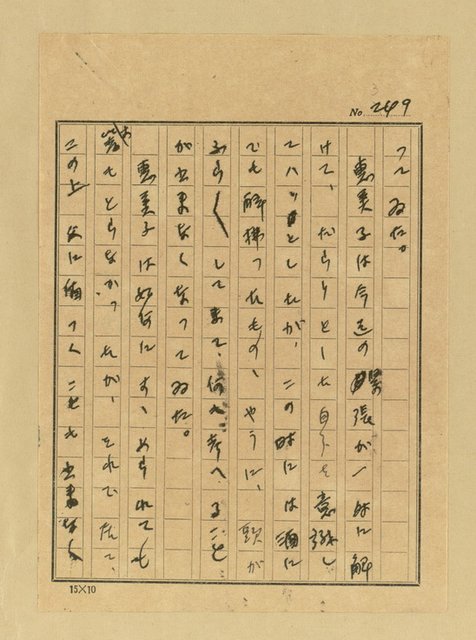 No 249
つてゐた。
惠美子は今迄の緊張が一時に解
けて、だらりとした自分を意識し
てハッとしたが、この時には酒に
でも醉拂つたものゝやうに、頭が
ふら〱して来て、何も考へること
が出来なくなつてゐた。
惠美子は如何にすゝめられても
箸をとらなかつたが、それでゐて、
この上 出来なく
15×10